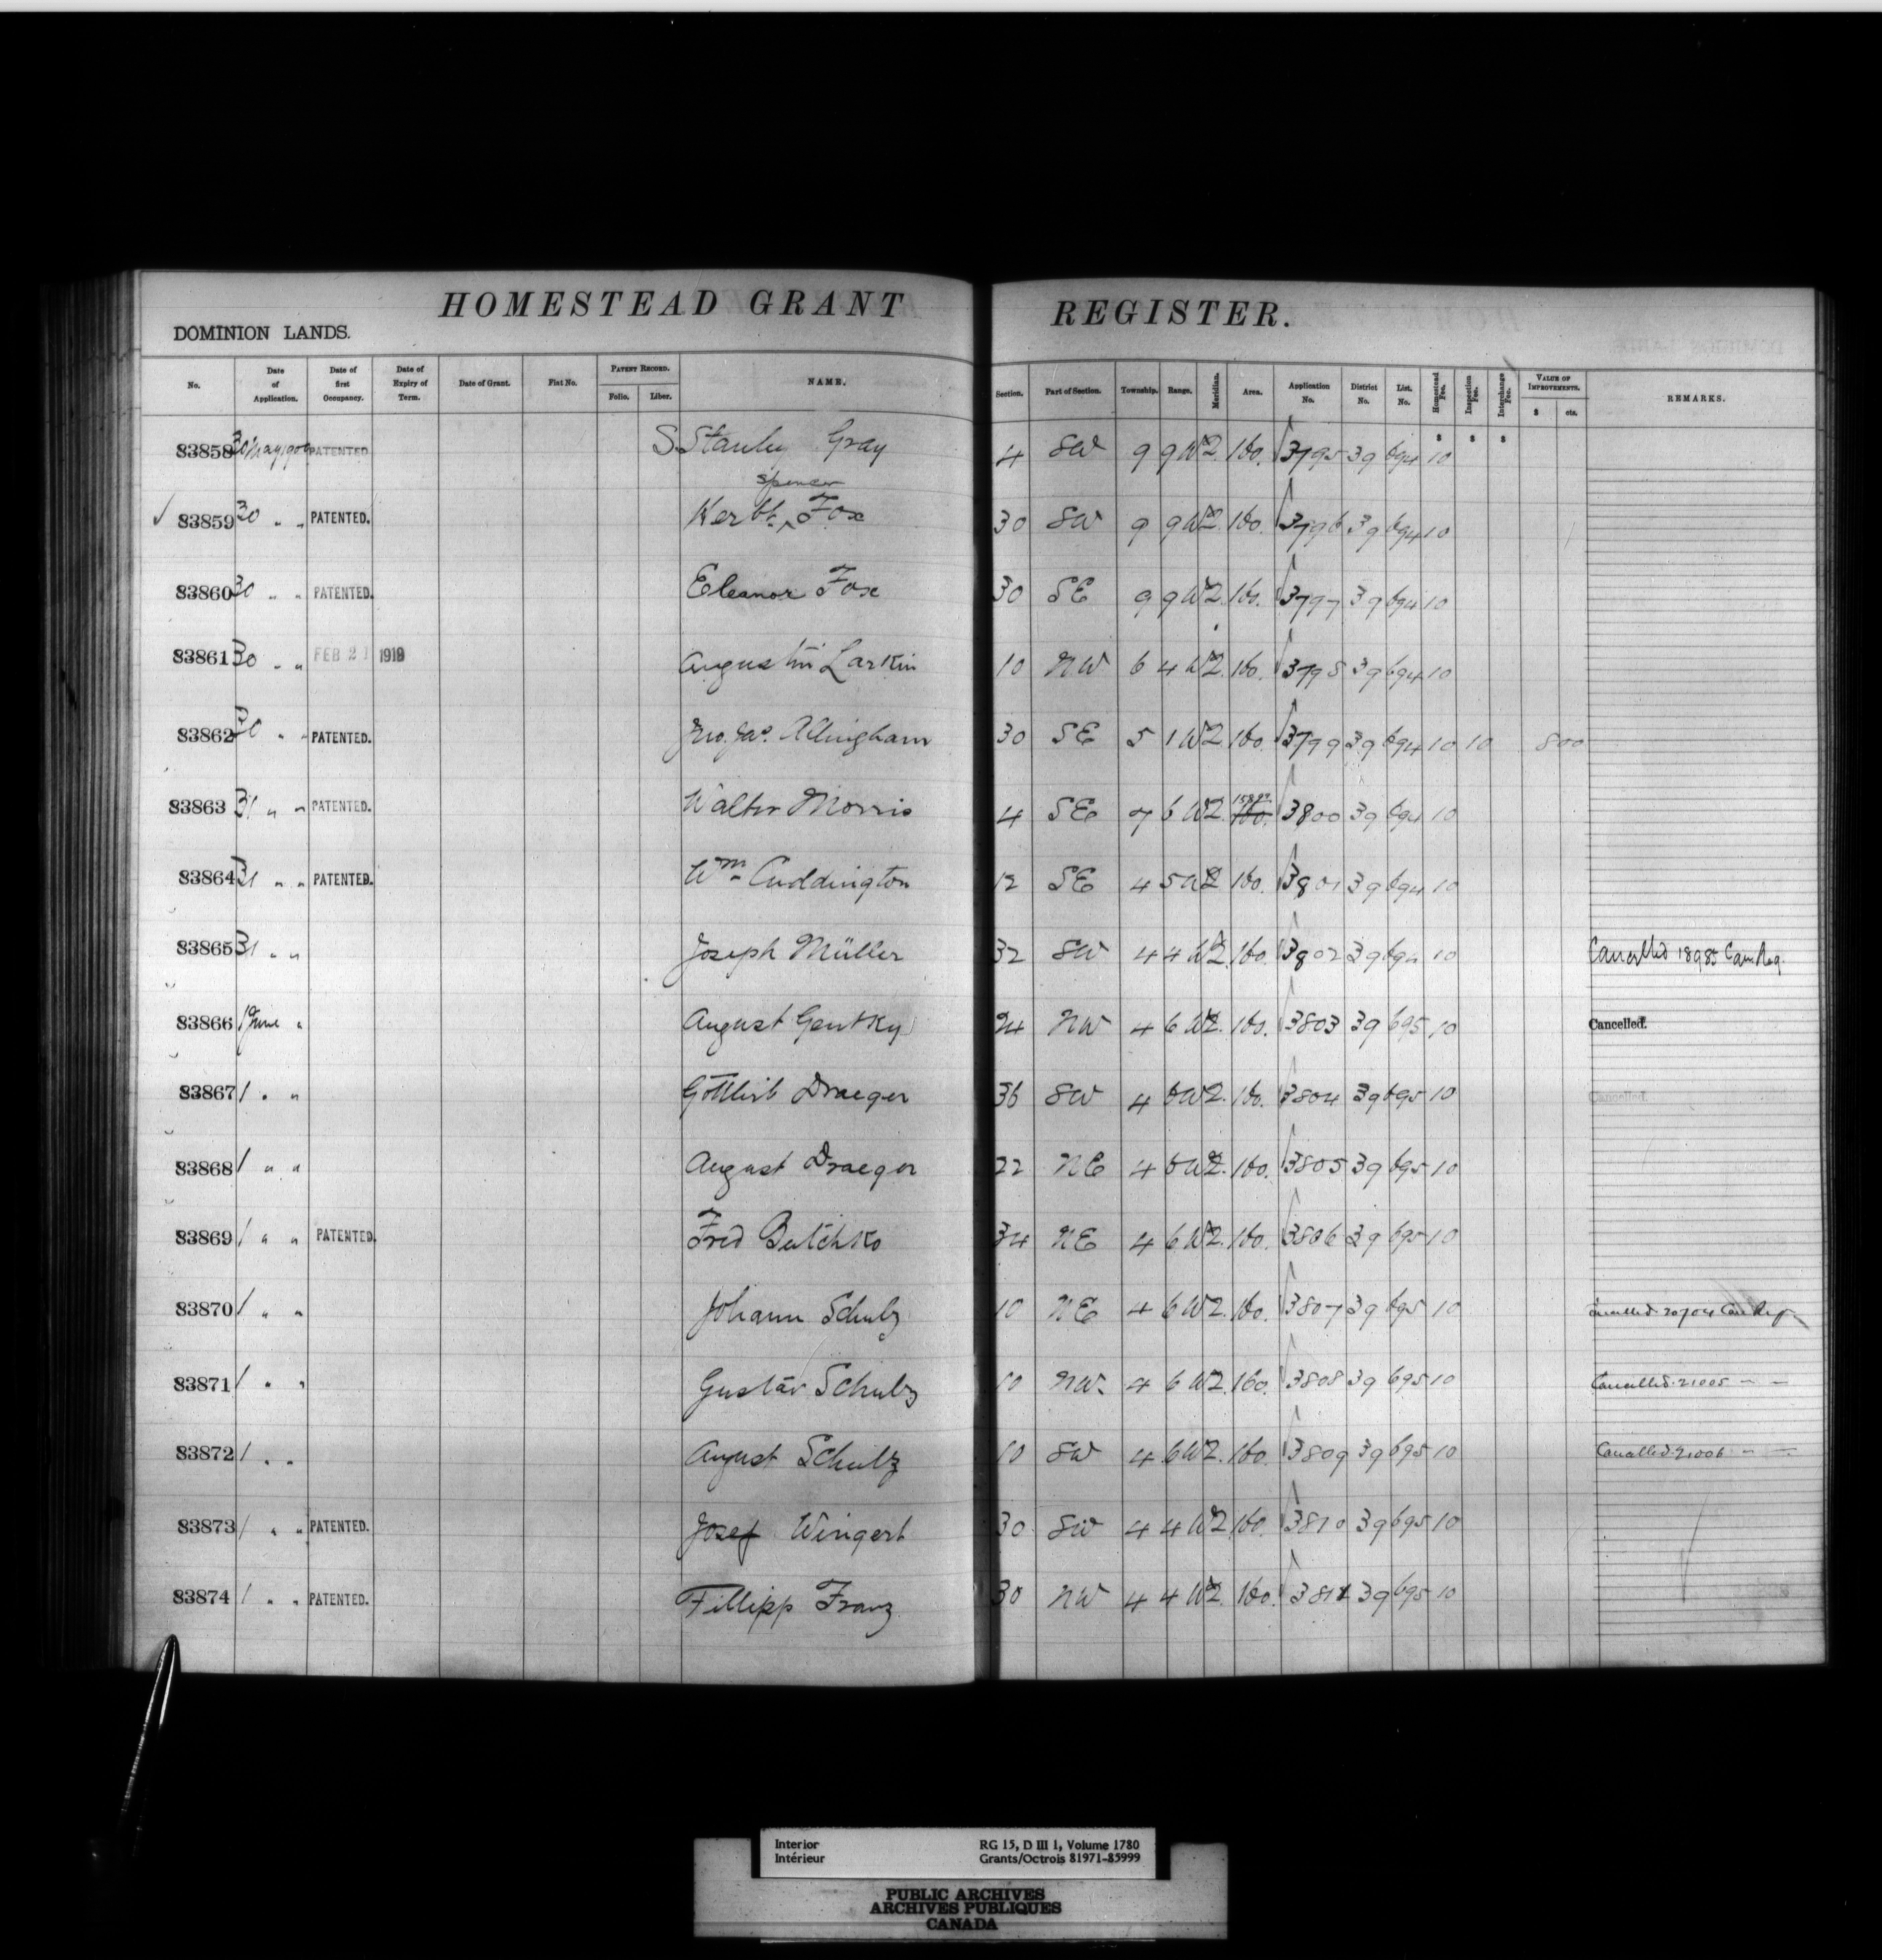 HOMESTEAD GRANT REGISTER.
DOMINION LANDS.
No. Date of Application. Date of first Occupancy. Date of Expiry of Term. Date of Grant. Fiat No. PATENT RECORD. Folio. Liber. NAME. Section. Part of Section. Township. Range. Meridian. Area. Application No. District No. List. No. Homestead Fee. Inspection Fee. Interchange Fee. VALUE OF IMPROVEMENTS. $ cts. REMARKS.
$ $ $
83858 30 May 1906 PATENTED S. Stanley Gray 4 SW 9 9 W2. 160. 3795 39 694 10
Spencer
83859 30 " " PATENTED. Kerbt. ^ Fox 30 SW 9 9 W2. 160. 3796 39 694 10
83860 30 " " PATENTED. Eleanor Fox 30 SE 9 9 W2. 160. 3797 39 694 10
83861 30 " " FEB 21 1919 Augustin Larkin 10 NW 6 4 W2. 160. 3798 39 694 10
83862 30 " " PATENTED. Jno. Jas. Allingham 30 SE 5 1 W2. 160. 3799 39 694 10 10 800
83863 31 " " PATENTED. Walter Morris 4 SE 7 6 W2. 160. 3800 39 694 10
83864 31 " " PATENTED. Wm Cuddington 12 SE 4 5 W2 160. 3801 39 694 10
83865 31 " " Joseph Müller 32 SW 4 4 W2. 160. 3802 39 694 10 Cancelled 18985 Can. Reg.
83866 1 June " August Gentky 24 NW 4 6 W2. 160. 3803 39 695 10 Cancelled.
83867 1 " " Gottlieb Draeger 36 SW 4 6 W2. 160. 3804 39 695 10 Cancelled.
83868 1 " " August Draeger 22 NE 4 6 W2. 160. 3805 39 695 10
83869 1 " " PATENTED. Fred Butchko 34 NE 4 6 W2. 160. 3806 39 695 10
83870 1 " " Johann Schulz 10 NE 4 6 W2. 160. 3807 39 695 10 Cancelled 20704 Can Reg
83871 1 " " Gustav Schulz 10 NW. 4 6 W2. 160. 3808 39 695 10 Cancelled. 21005 — —
83872 1 " " August Schulz 10 SW 4 6 W2. 160. 3809 39 695 10 Cancelled. 21006 — —
83873 1 " " PATENTED. Josef Wingert 30 SW 4 4 W2 160. 3810 39 695 10
83874 1 " " PATENTED. Fillipp Franz 30 NW 4 4 W2. 160. 3811 39 695 10
Interior RG 15, D III 1, Volume 1780
Intérieur Grants/Octrois 81971-85999
PUBLIC ARCHIVES
ARCHIVES PUBLIQUES
CANADA